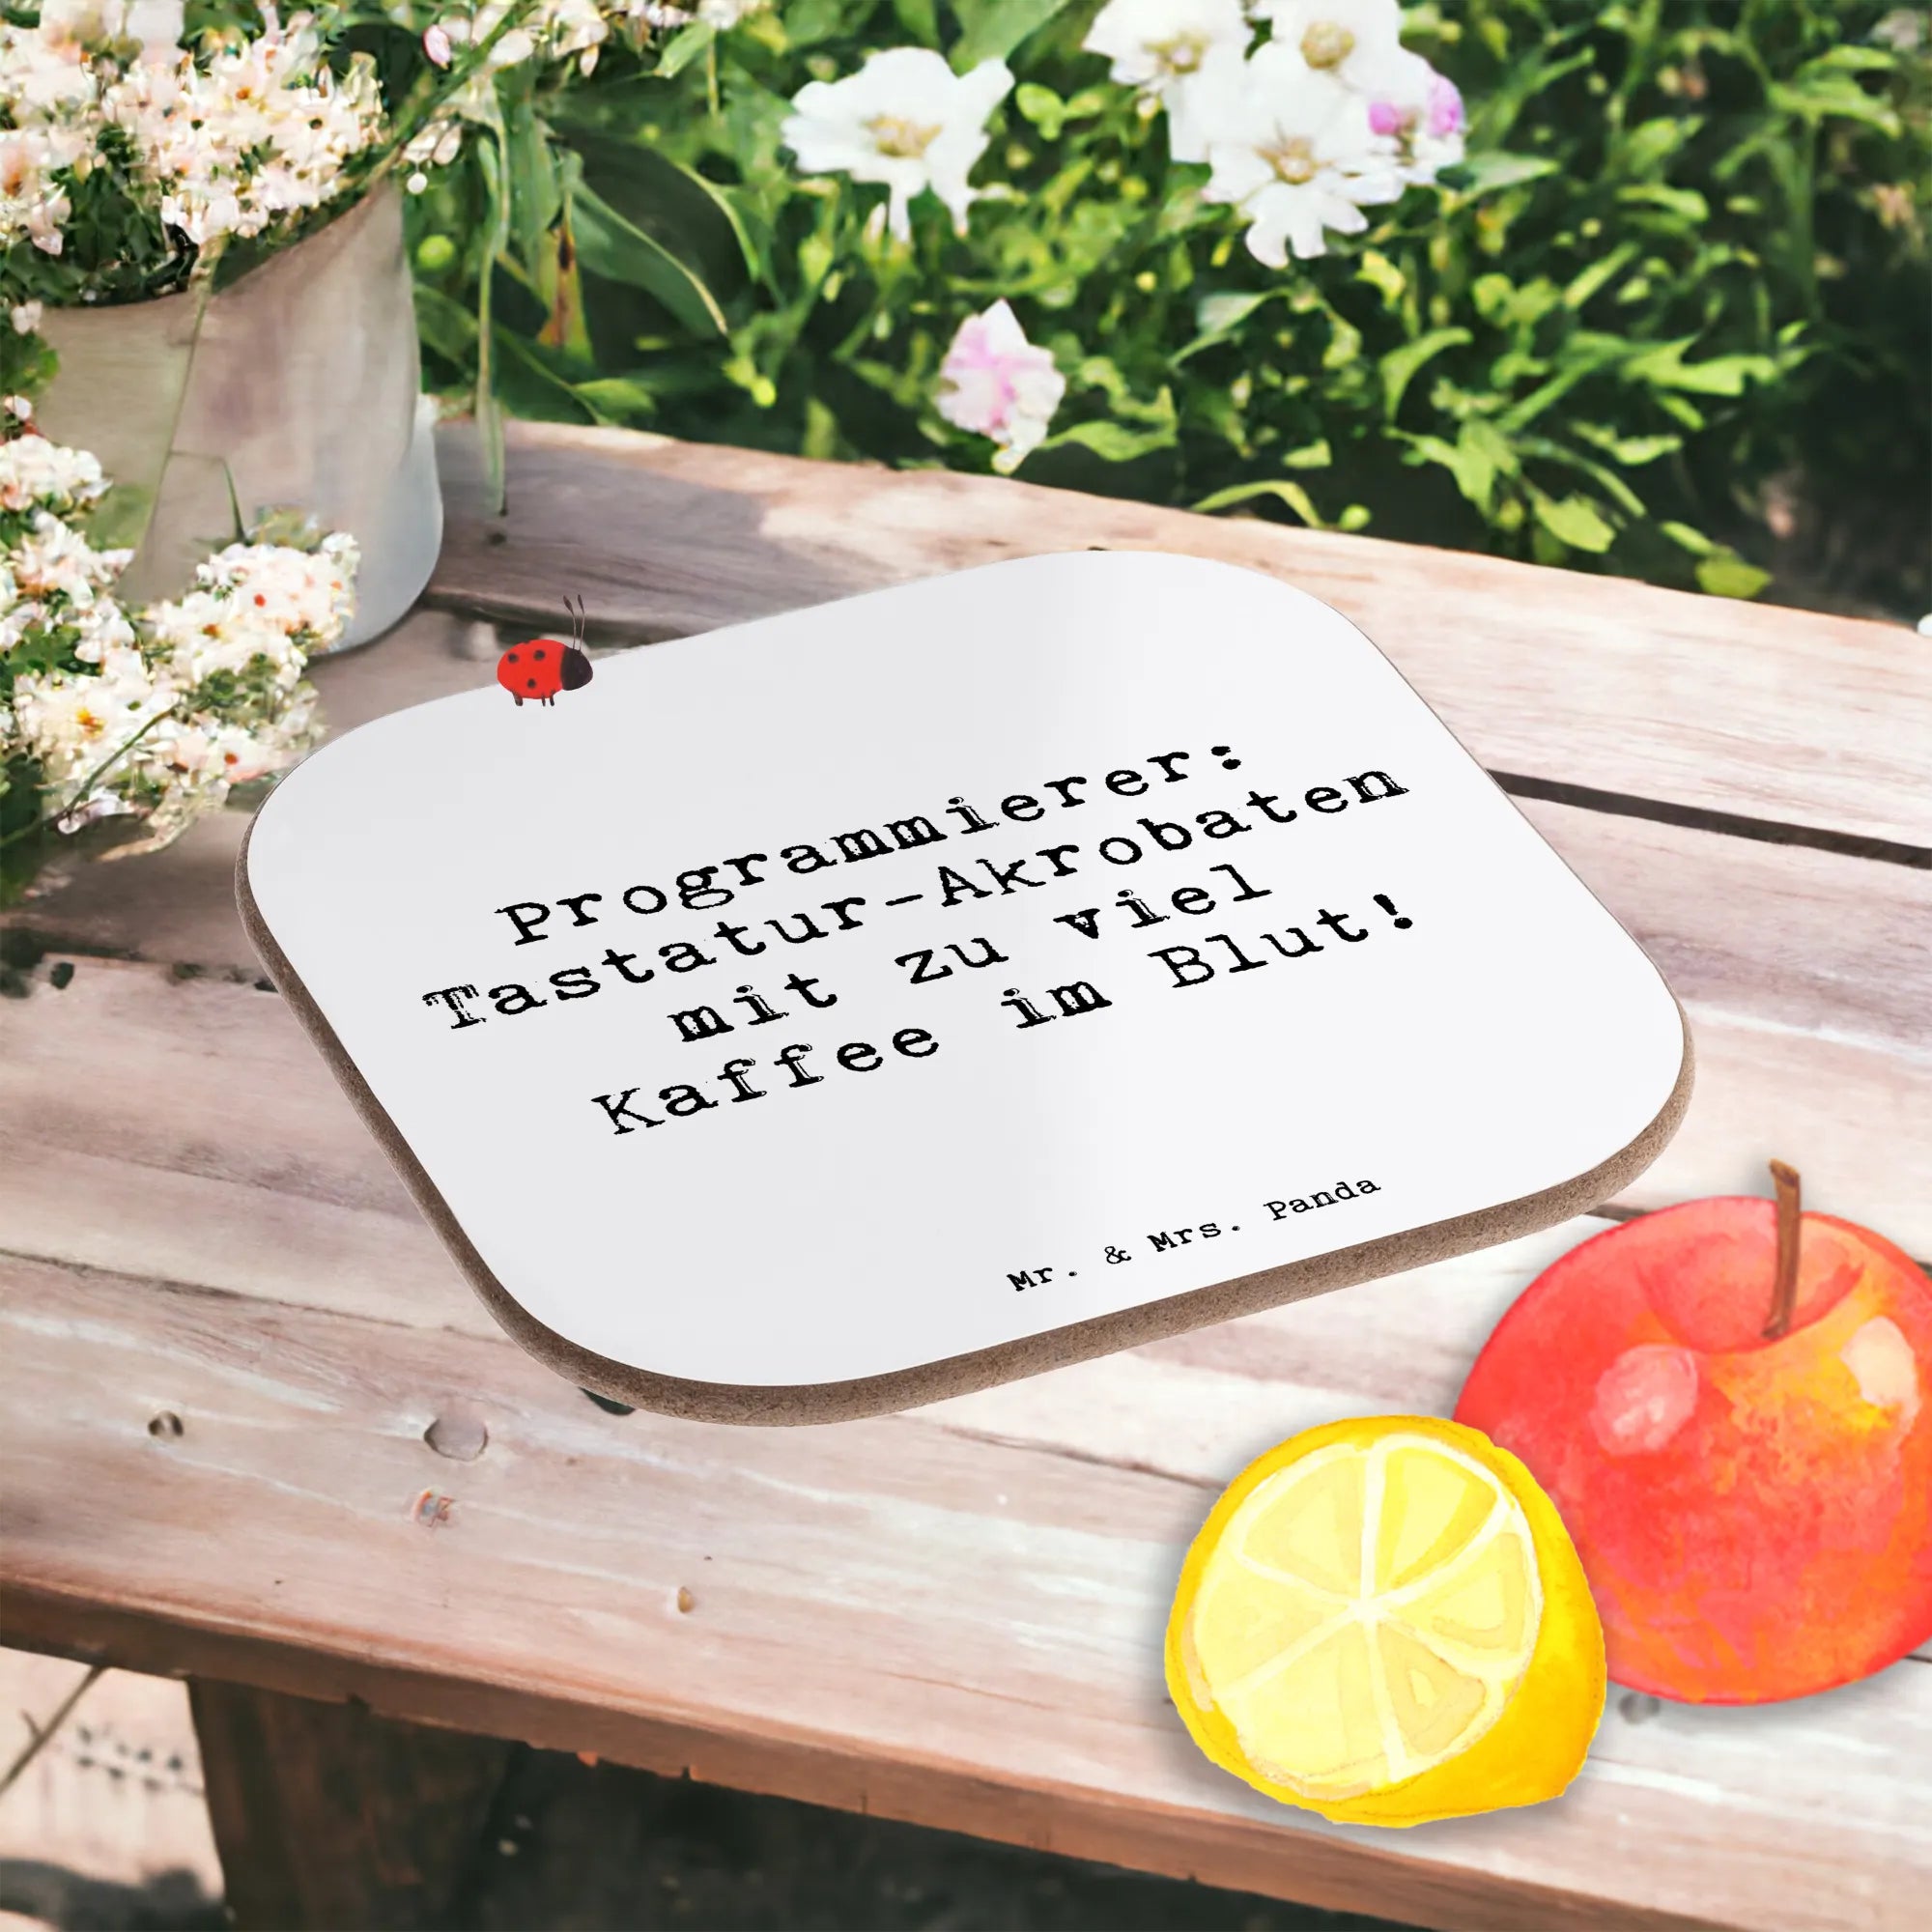 Programmierer:
Tastatur-Akrobaten
mit zu viel
Kaffee im Blut!
Mr. & Mrs. Panda